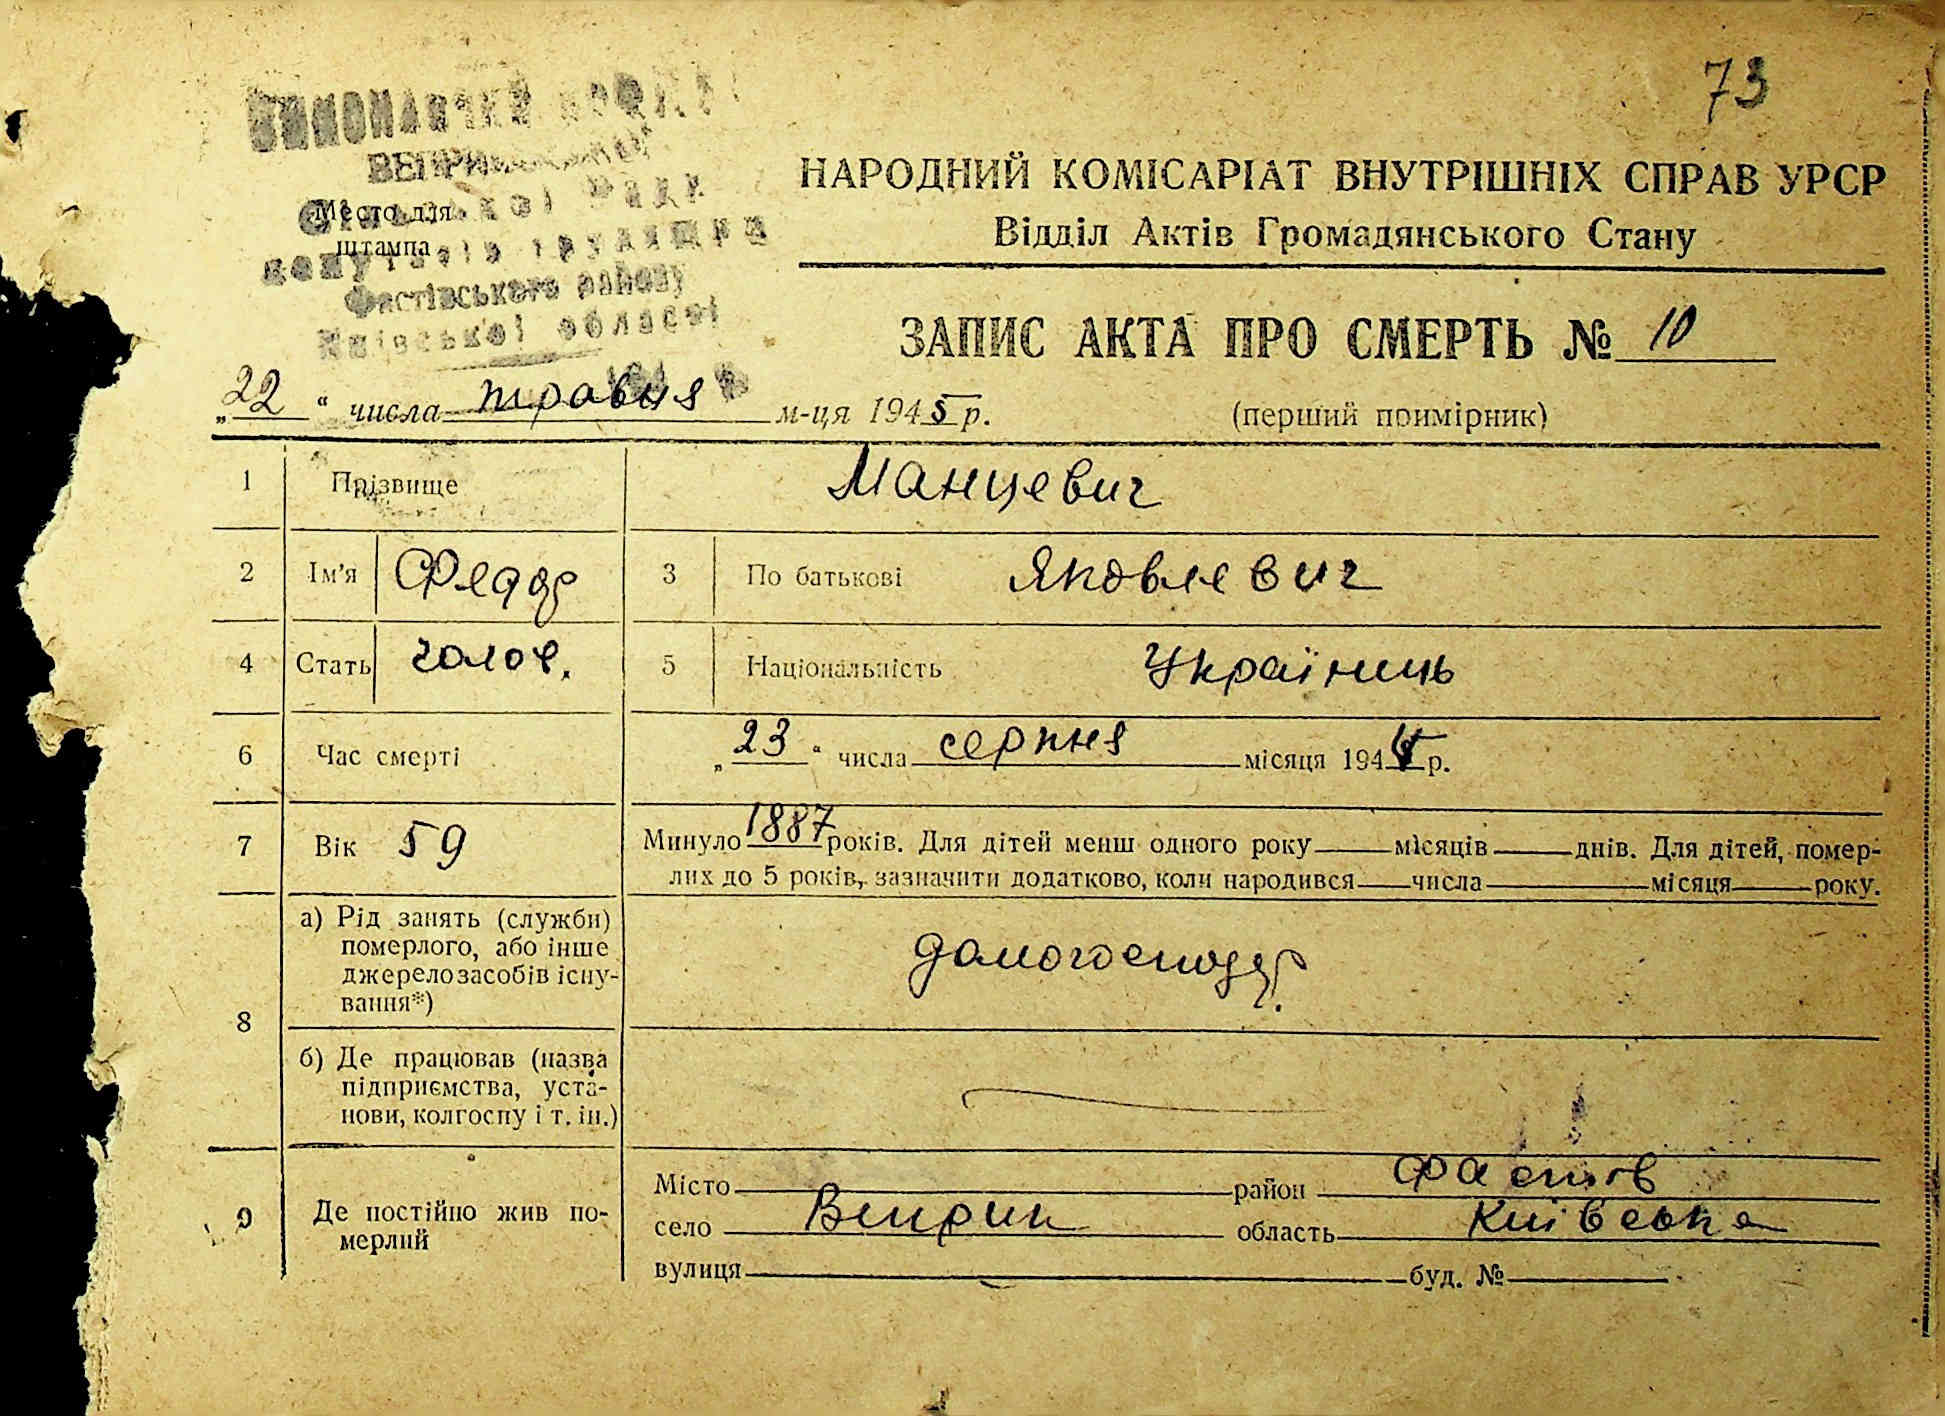 73
Виконавчий
ВЕПРИ
Сільської Ради
Место для
штампа
депутатів трудящих
Фастівського району
Київської області
НАРОДНИЙ КОМІСАРІАТ ВНУТРІШНІХ СПРАВ УРСР
Відділ Актів Громадянського Стану
ЗАПИС АКТА ПРО СМЕРТЬ № 10
„22“ числа травня м-ця 1945 р.
(перший примірник)
1 Прізвище Манцевич
2 Ім'я Федор 3 По батькові Яковлевич
4 Стать чолов. 5 Національність Україниць
6 Час смерті „23“ числа серпня місяця 194 р.
7 Вік 59 Минуло 1887 років. Для дітей менш одного року місяців днів. Для дітей, помер-
лих до 5 років, зазначити додатково, коли народився числа місяця року.
8 а) Рід занять (служби)
померлого, або інше
джерело засобів існу-
вання*)
домогосподар.
б) Де працював (назва
підприємства, уста-
нови, колгоспу і т. ін.)
9 Де постійно жив по-
мерлий
Місто район Фастів
село Веприк область Київська
вулиця буд. №